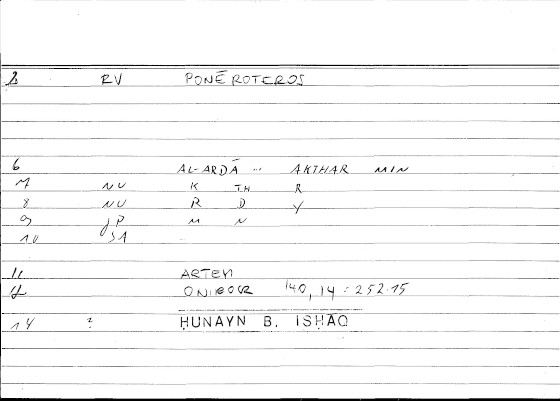 2 RV PONĒROTEROS
6 AL-ARDĀ ... AKTHAR MIN
7 NU K TH R
8 NU R D Y
9 JP M N
10 SA
11 ARTEM
ONIROCR 140, 14 : 252.15
14 ? ḤUNAYN B. ISḤĀQ